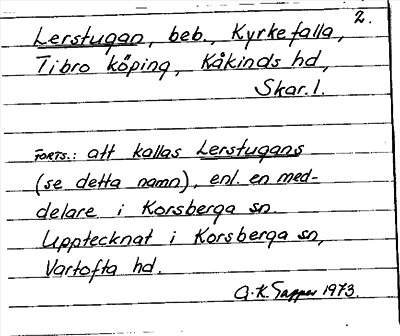 2.
Lerstugan, beb., Kyrkefalla,
Tibro köping, Kåkinds hd,
Skar. l.
FORTS.: att kallas Lerstugans
(se detta namn), enl. en med-
delare i Korsberga sn.
Upptecknat i Korsberga sn,
Vartofta hd.
G.K. 1973.